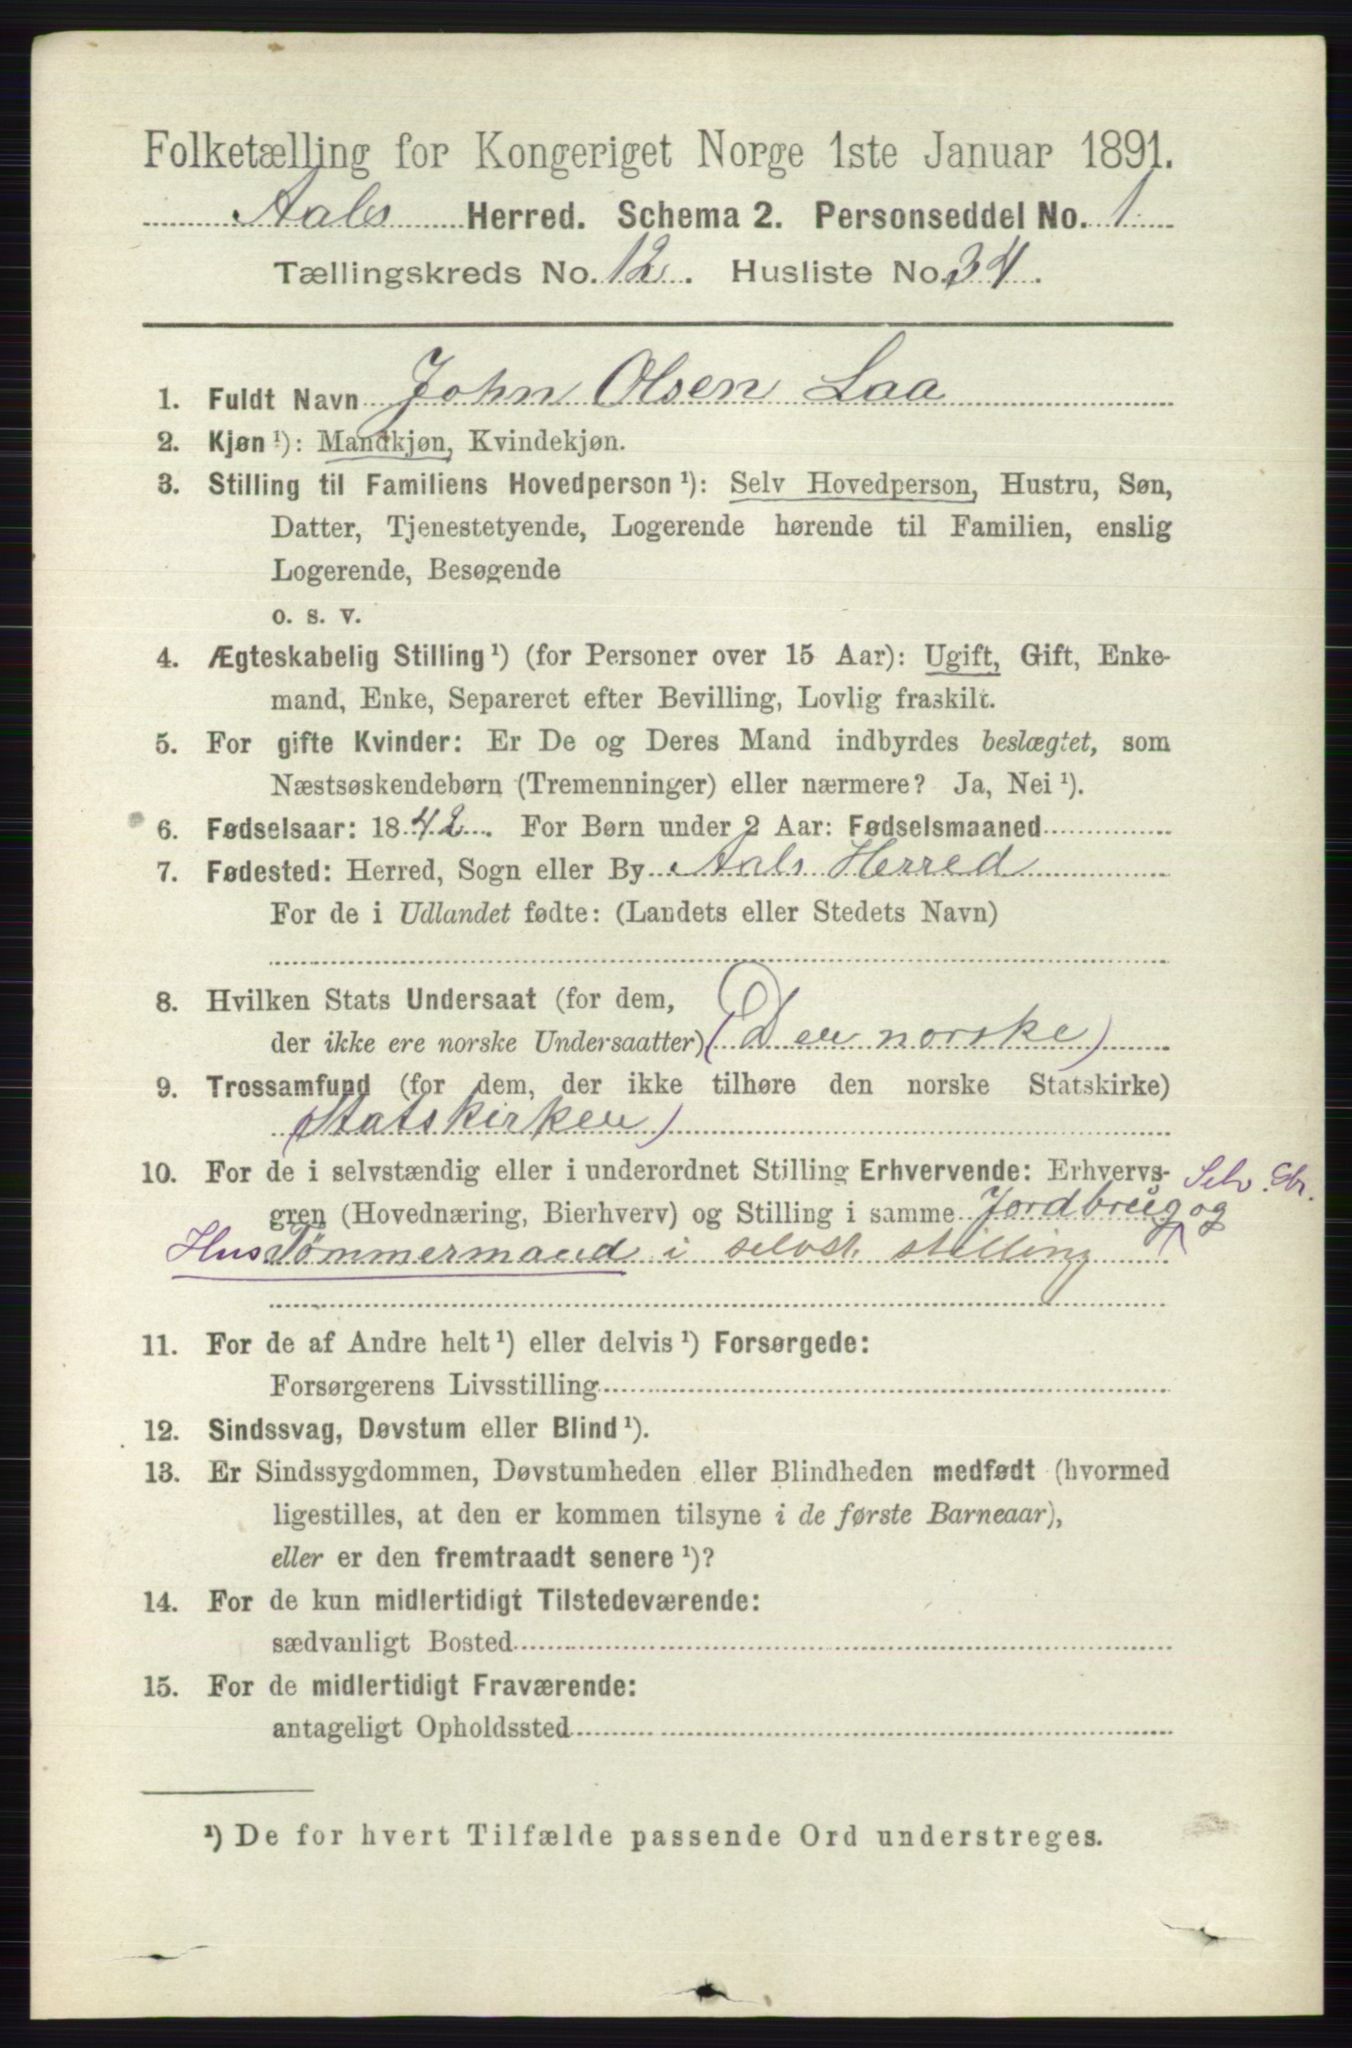 Folketælling for Kongeriget Norge 1ste Januar 1891.
Aals Herred. Schema 2. Personseddel No. 1.
Tællingskreds No. 12. Husliste No. 34.
1. Fuldt Navn John Olsen Laa
2. Kjøn ¹): Mandkjøn, Kvindekjøn.
3. Stilling til Familiens Hovedperson ¹): Selv Hovedperson, Hustru, Søn,
Datter, Tjenestetyende, Logerende hørende til Familien, enslig
Logerende, Besøgende
o. s. v.
4. Ægteskabelig Stilling ¹) (for Personer over 15 Aar): Ugift, Gift, Enke-
mand, Enke, Separeret efter Bevilling, Lovlig fraskilt.
5. For gifte Kvinder: Er De og Deres Mand indbyrdes beslægtet, som
Næstsøskendebørn (Tremenninger) eller nærmere? Ja, Nei ¹).
6. Fødselsaar: 1842. For Børn under 2 Aar: Fødselsmaaned
7. Fødested: Herred, Sogn eller By Aals Herred
For de i Udlandet fødte: (Landets eller Stedets Navn)
8. Hvilken Stats Undersaat (for dem,
der ikke ere norske Undersaatter) (Den norske)
9. Trossamfund (for dem, der ikke tilhøre den norske Statskirke)
(Statskirken)
10. For de i selvstændig eller i underordnet Stilling Erhvervende: Erhvervs- Selv.
gren (Hovednæring, Bierhverv) og Stilling i samme Jordbrug og
Hus Tømmermand i selvst. stilling
11. For de af Andre helt ¹) eller delvis ¹) Forsørgede:
Forsørgerens Livsstilling
12. Sindssvag, Døvstum eller Blind ¹).
13. Er Sindssygdommen, Døvstumheden eller Blindheden medfødt (hvormed
ligestilles, at den er kommen tilsyne i de første Barneaar),
eller er den fremtraadt senere ¹)?
14. For de kun midlertidigt Tilstedeværende:
sædvanligt Bosted
15. For de midlertidigt Fraværende:
antageligt Opholdssted
¹) De for hvert Tilfælde passende Ord understreges.